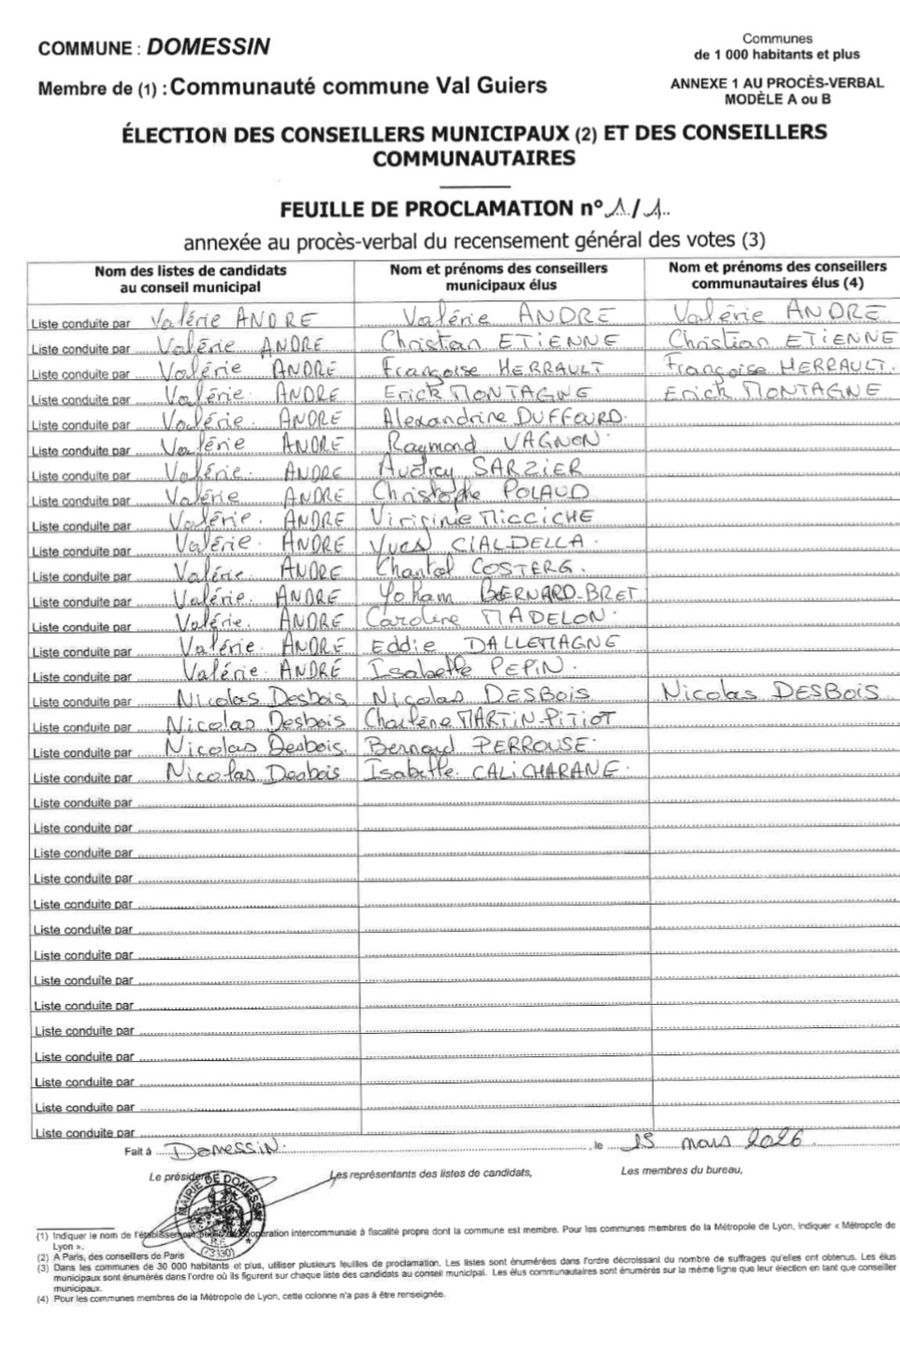 COMMUNE : DOMESSIN
Communes
de 1 000 habitants et plus
Membre de (1) : Communauté commune Val Guiers
ANNEXE 1 AU PROCÈS-VERBAL
MODÈLE A ou B
ÉLECTION DES CONSEILLERS MUNICIPAUX (2) ET DES CONSEILLERS
COMMUNAUTAIRES
FEUILLE DE PROCLAMATION n° 1/1
annexée au procès-verbal du recensement général des votes (3)
Nom des listes de candidats au conseil municipal | Nom et prénoms des conseillers municipaux élus | Nom et prénoms des conseillers communautaires élus (4)
Liste conduite par Valérie ANDRE Valérie ANDRE Valérie ANDRE
Liste conduite par Valérie ANDRE Christian ETIENNE Christian ETIENNE
Liste conduite par Valérie ANDRE Françoise HERRAULT Françoise HERRAULT.
Liste conduite par Valérie ANDRE Erick MONTAGNE Erick MONTAGNE
Liste conduite par Valérie. ANDRE Alexandrine DUFFOURD.
Liste conduite par Valérie ANDRE Raymond VAGNON.
Liste conduite par Valérie. ANDRE Audrey SARZIER
Liste conduite par Valérie ANDRE Christophe POLAUD
Liste conduite par Valérie. ANDRE Virginie MICCICHE
Liste conduite par Valérie. ANDRE Yves CIALDELLA.
Liste conduite par Valérie. ANDRE Chantal COSTERG.
Liste conduite par Valérie. ANDRE Yoham BERNARD-BRET
Liste conduite par Valérie. ANDRE Caroline MADELON.
Liste conduite par Valérie. ANDRE Eddie DALLEMAGNE
Liste conduite par Valérie. ANDRÉ Isabelle PEPIN.
Liste conduite par Nicolas Desbois Nicolas DESBOIS Nicolas DESBOIS
Liste conduite par Nicolas Desbois Charlène MARTIN-PITIOT
Liste conduite par Nicolas Desbois. Bernard PERROUSE.
Liste conduite par Nicolas Desbois Isabelle CALICHARANE.
Liste conduite par
Liste conduite par
Liste conduite par
Liste conduite par
Liste conduite par
Liste conduite par
Liste conduite par
Liste conduite par
Liste conduite par
Liste conduite par
Liste conduite par
Liste conduite par
Liste conduite par
Liste conduite par
Fait à DOMESSIN. , le 15 mars 2026
Le président Les représentants des listes de candidats, Les membres du bureau,
MAIRIE DE DOMESSIN
(73330)
(1) Indiquer le nom de l'établissement public de coopération intercommunale à fiscalité propre dont la commune est membre. Pour les communes membres de la Métropole de Lyon, indiquer « Métropole de
Lyon ».
(2) A Paris, des conseillers de Paris
(3) Dans les communes de 30 000 habitants et plus, utiliser plusieurs feuilles de proclamation. Les listes sont énumérées dans l'ordre décroissant du nombre de suffrages qu'elles ont obtenus. Les élus
municipaux sont énumérés dans l'ordre où ils figurent sur chaque liste des candidats au conseil municipal. Les élus communautaires sont énumérés sur la même ligne que leur élection en tant que conseiller
municipaux.
(4) Pour les communes membres de la Métropole de Lyon, cette colonne n'a pas à être renseignée.